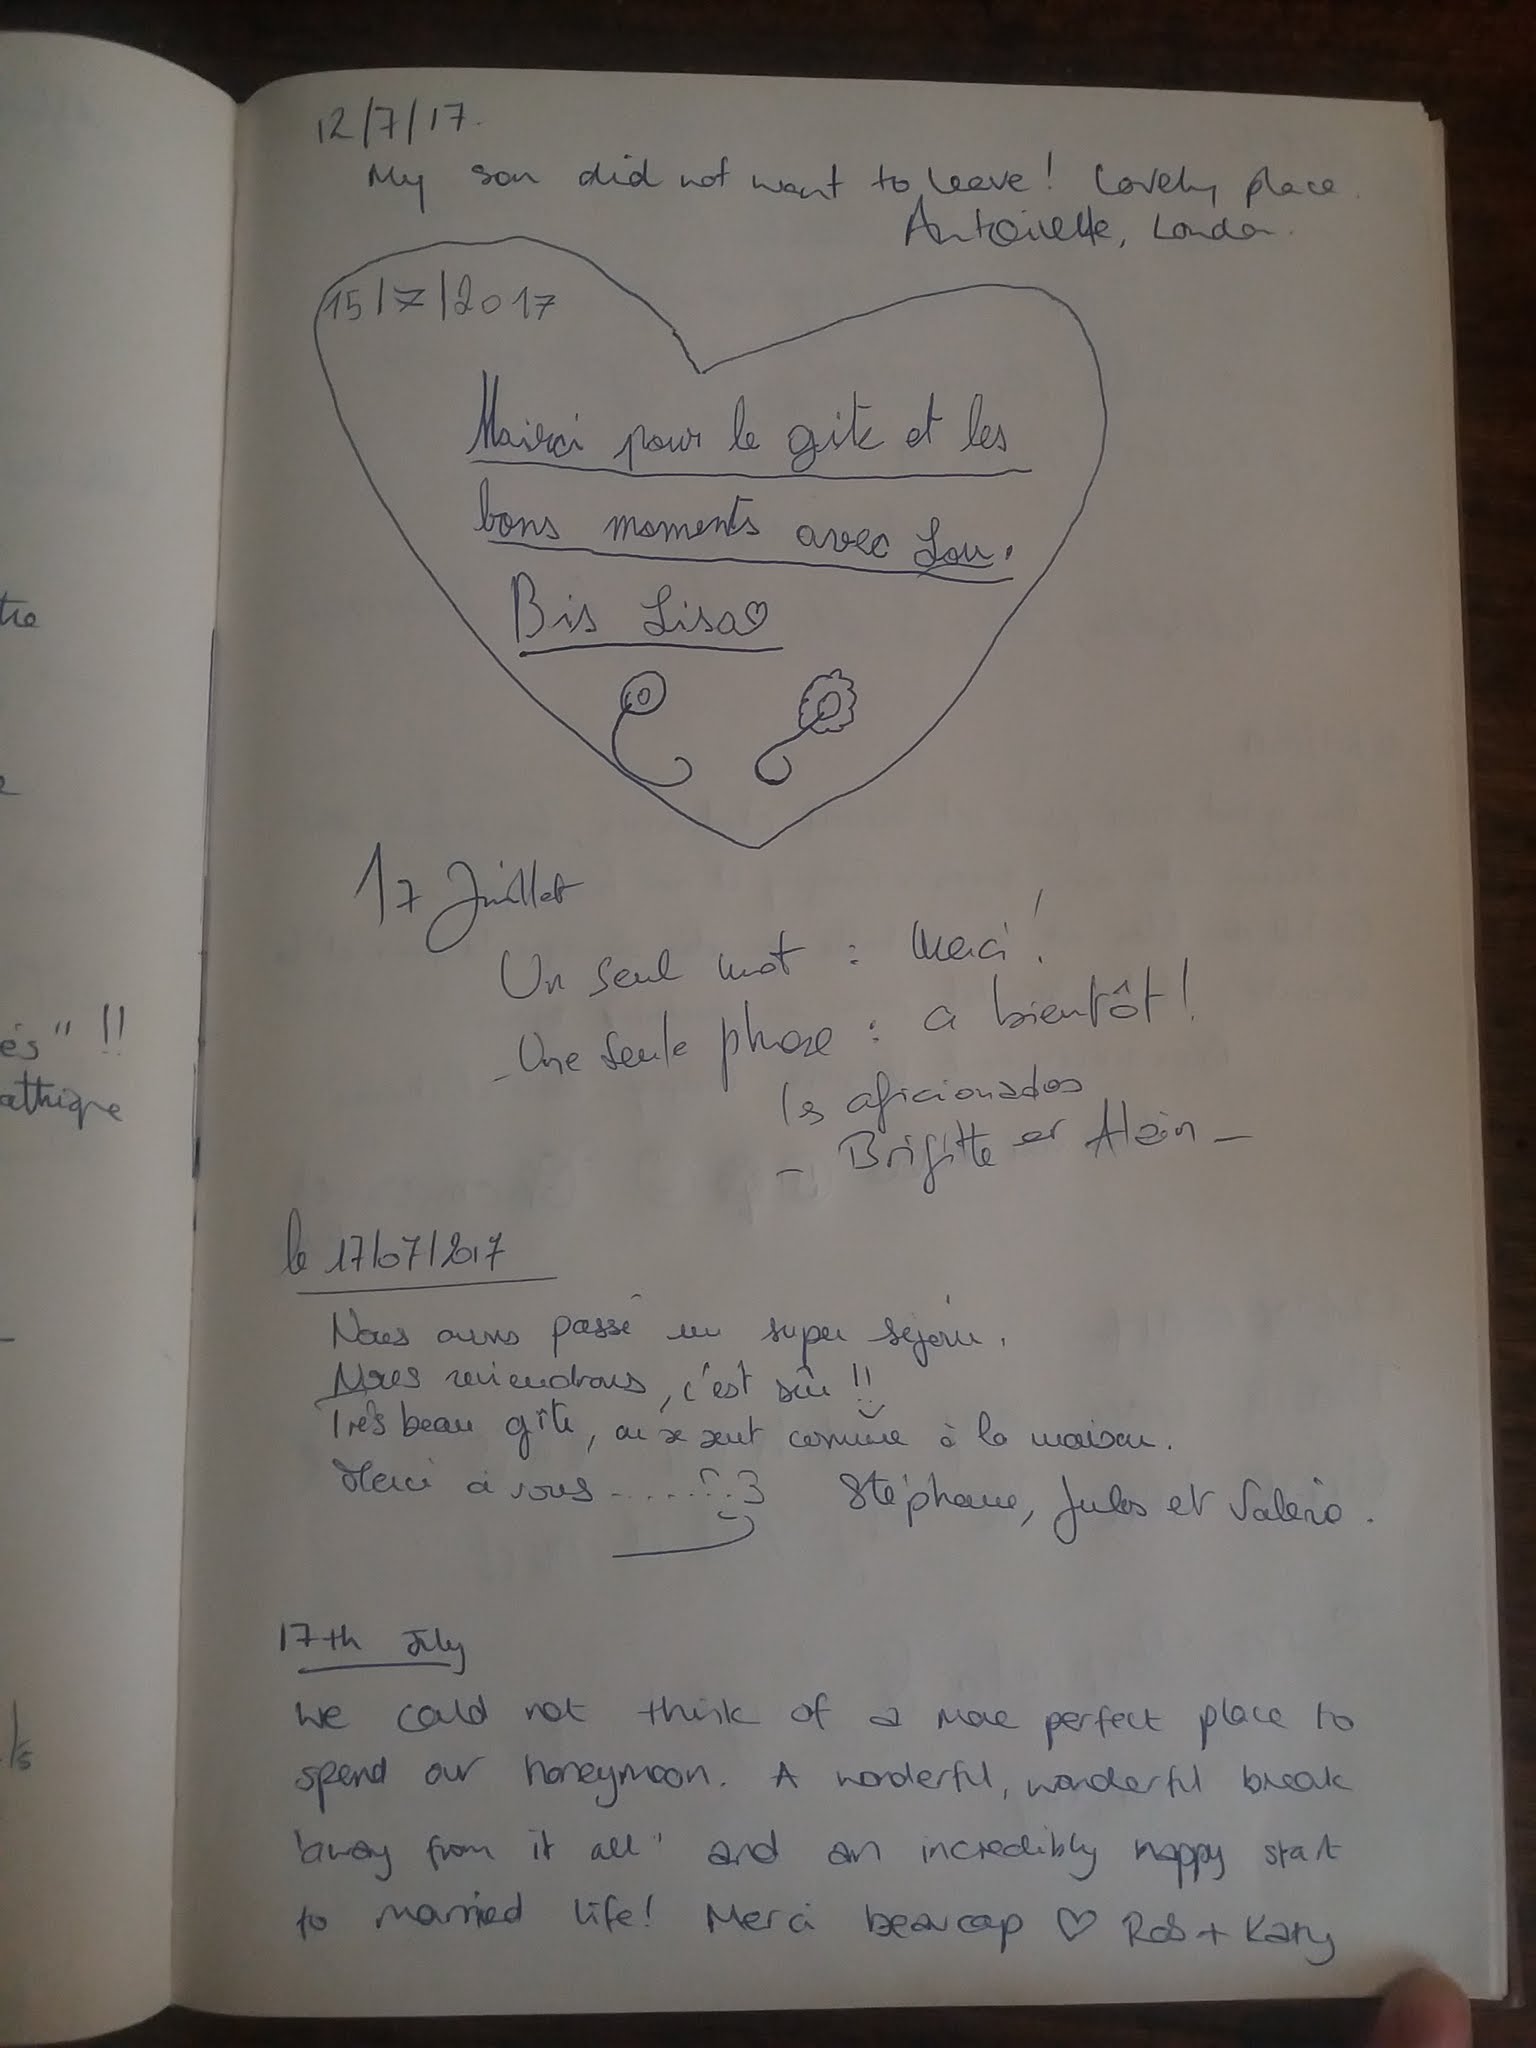 tre
és" !!
athique
12/7/17.
My son did not want to leave! Lovely place.
Antoinette, London.
15/7/2017
Mairci pour le gite et les
bons moments avec Lou.
Bis Lisa♡
17 Juillet
Un seul mot : Merci !
- Une seule phrase : a bientôt !
les aficionados
- Brigitte et Alain -
le 17/07/2017
Nous avons passé un super séjour.
Nous reviendrons, c'est sûr !!
Très beau gîte, on se sent comme à la maison.
Merci à vous ....... Stéphane, Jules et Valérie.
17th July
We could not think of a more perfect place to
spend our honeymoon. A wonderful, wonderful break
'away from it all' and an incredibly happy start
to married life! Merci beaucoup ♡ Rob + Katy